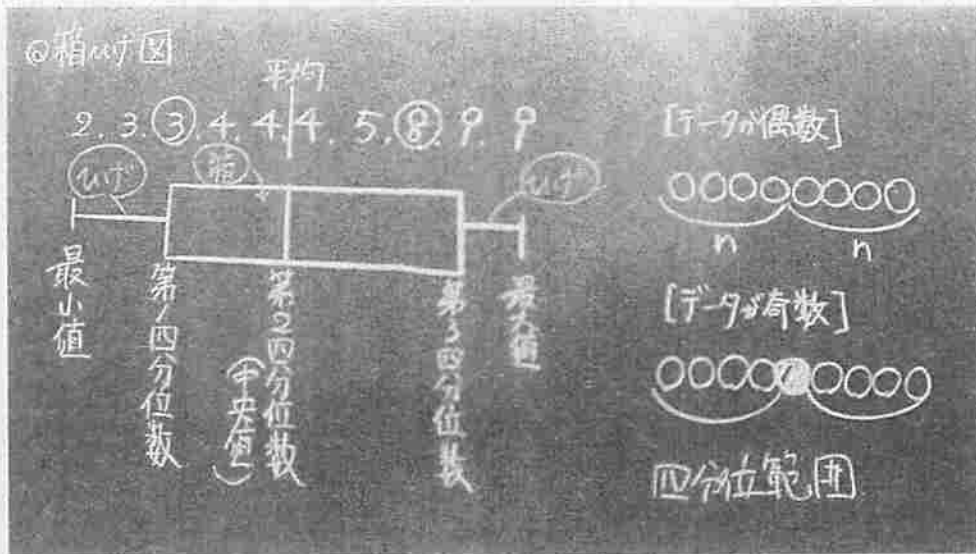 ◎箱ひげ図
平均
2. 3. ③. 4. 4. 4. 5. ⑧. 9. 9
ひげ
箱
ひげ
最小値
第1四分位数
第2四分位数
(中央値)
第3四分位数
最大値
[データが偶数]
n
n
[データが奇数]
四分位範囲